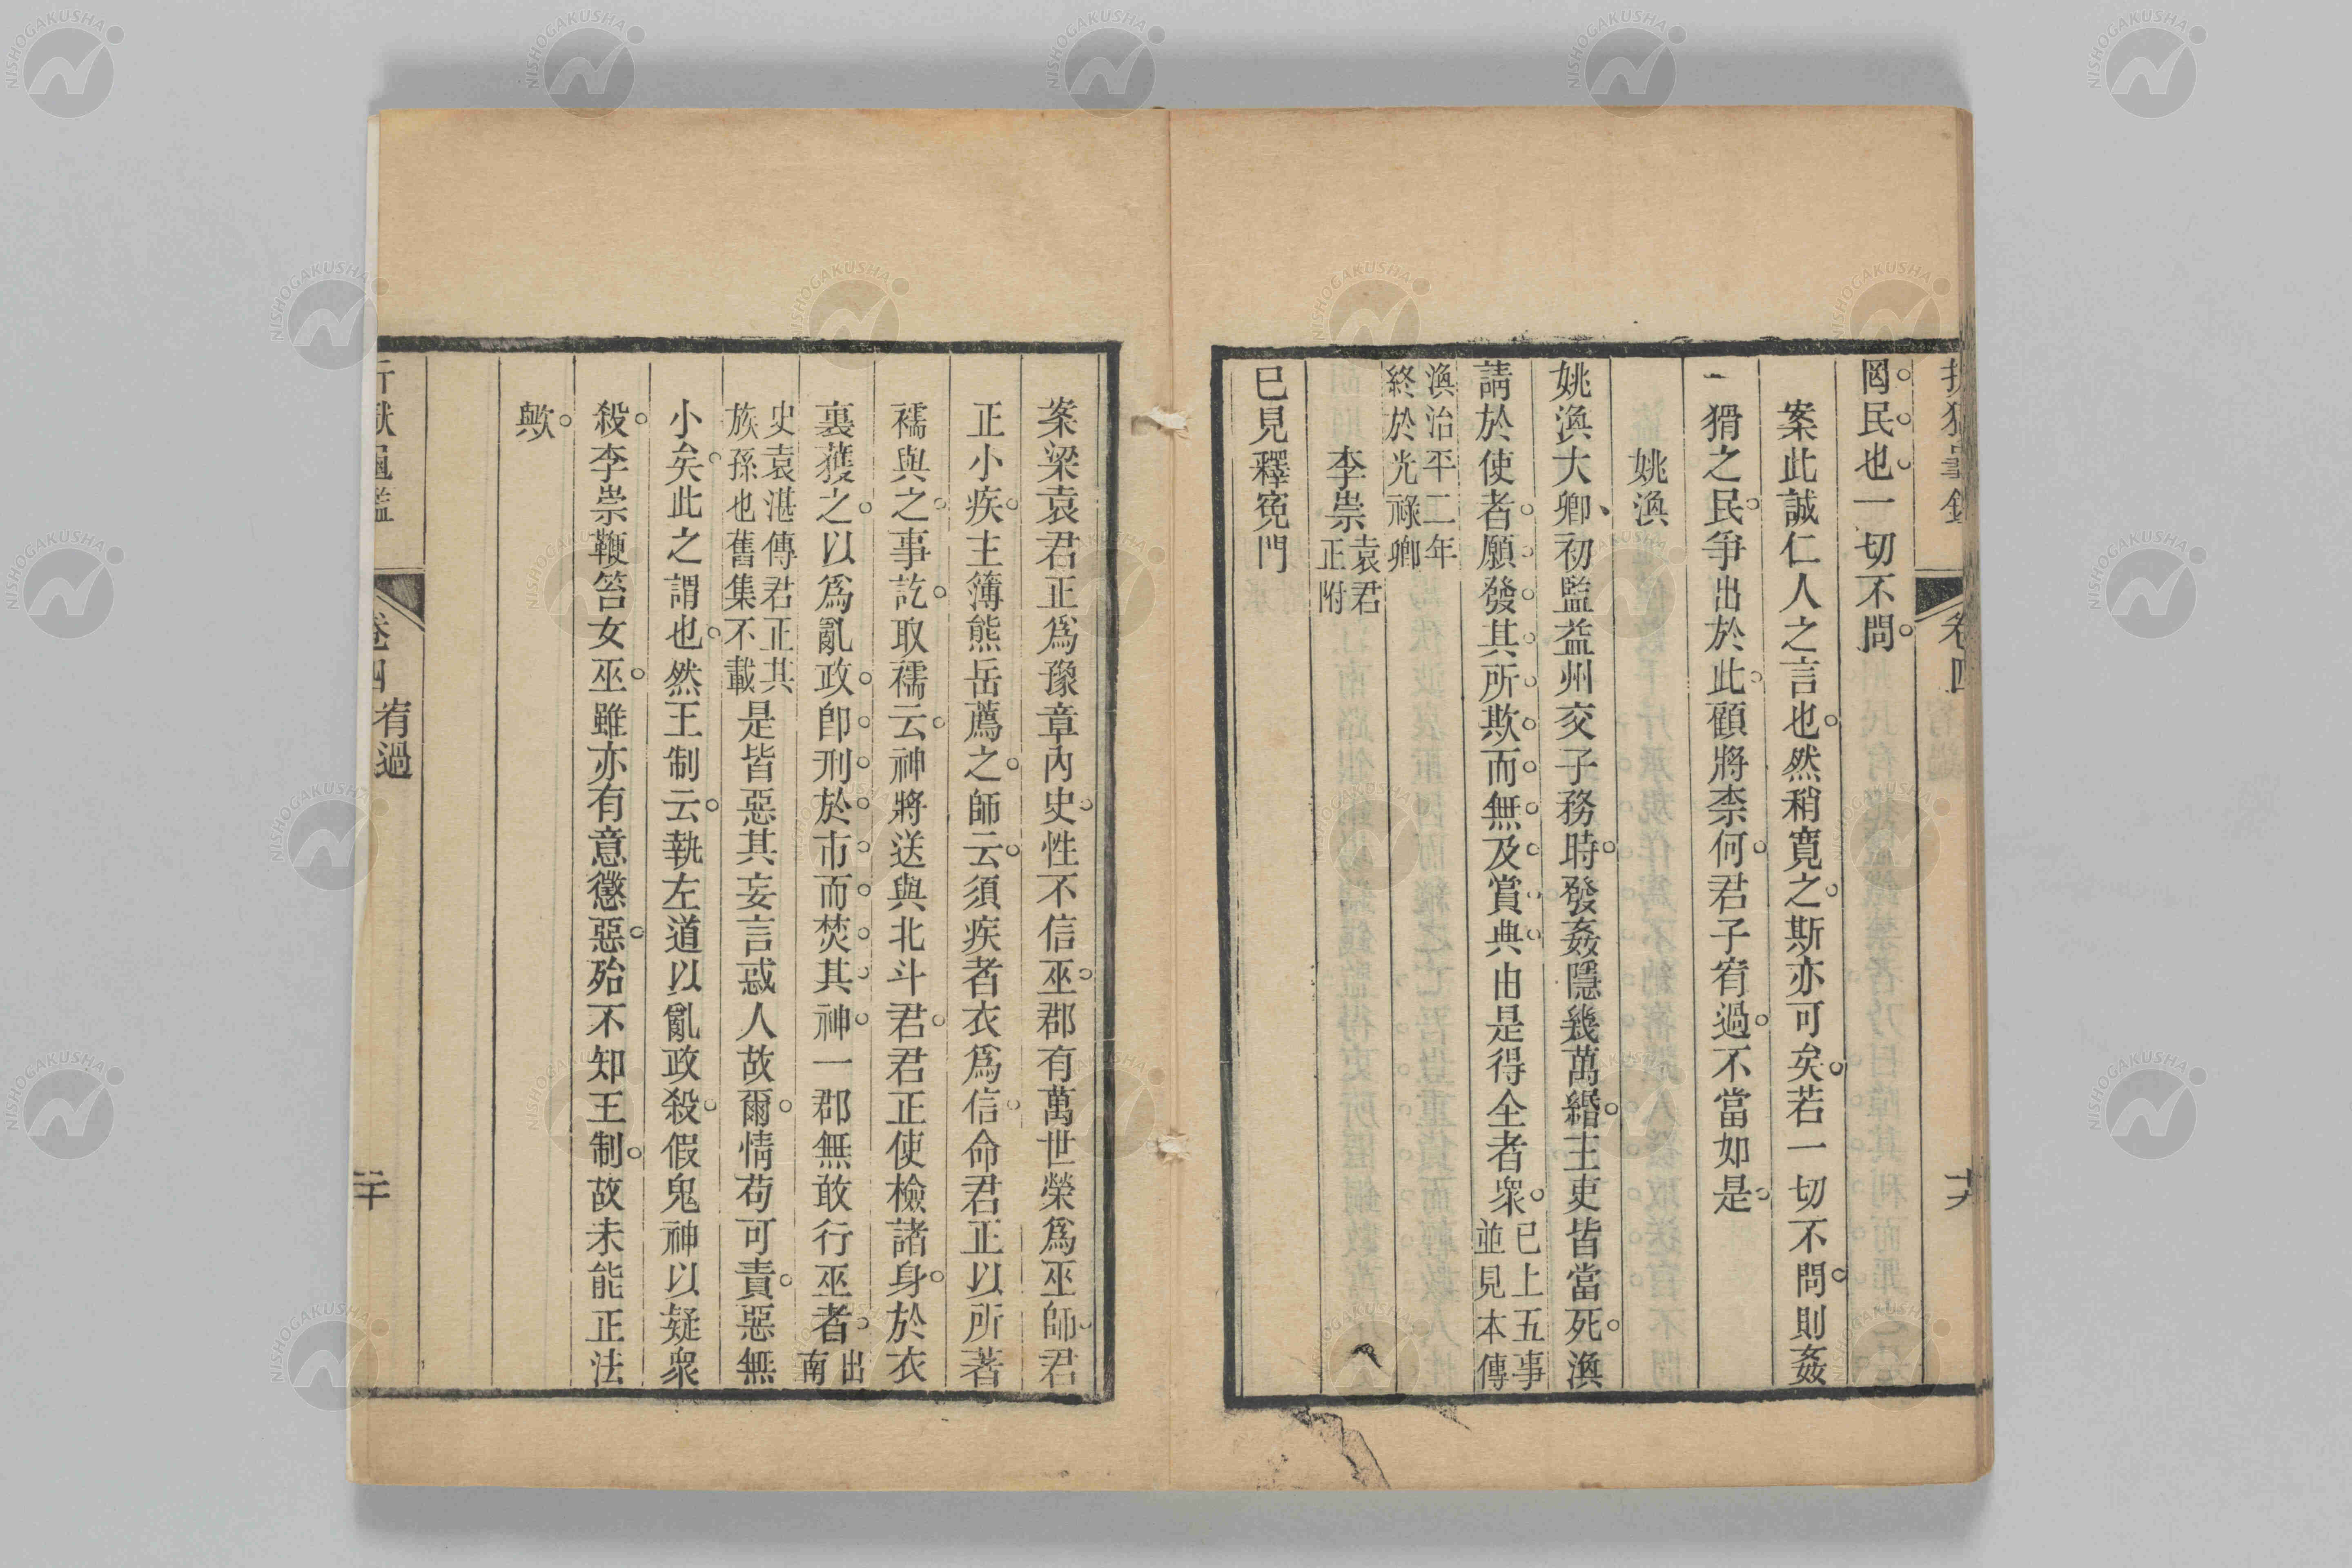 罔民也一切不問
案此誠仁人之言也然稍寬之斯亦可矣若一切不問則姦
猾之民爭出於此顧將柰何君子宥過不當如是
姚渙
姚渙大卿初監益州交子務時發姦隱幾萬緡主吏皆當死渙
請於使者願發其所欺而無及賞典由是得全者衆已上五事並見本傳
渙治平二年終於光祿卿
李崇袁君正附
已見釋寃門
卷四
十九
案梁袁君正爲豫章內史性不信巫郡有萬世榮爲巫師君
正小疾主簿熊岳薦之師云須疾者衣爲信命君正以所著
襦與之事訖取襦云神將送與北斗君君正使檢諸身於衣
裏獲之以爲亂政卽刑於市而焚其神一郡無敢行巫者出南
史袁湛傳君正其族孫也舊集不載是皆惡其妄言惑人故爾情苟可責惡無
小矣此之謂也然王制云執左道以亂政殺假鬼神以疑衆
殺李崇鞭笞女巫雖亦有意懲惡殆不知王制故未能正法
歟
折獄龜鑑
卷四 宥過
二十
NISHOGAKUSHA